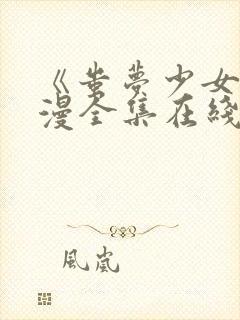 《蚩夢少女
漫全集在綫
風嵐